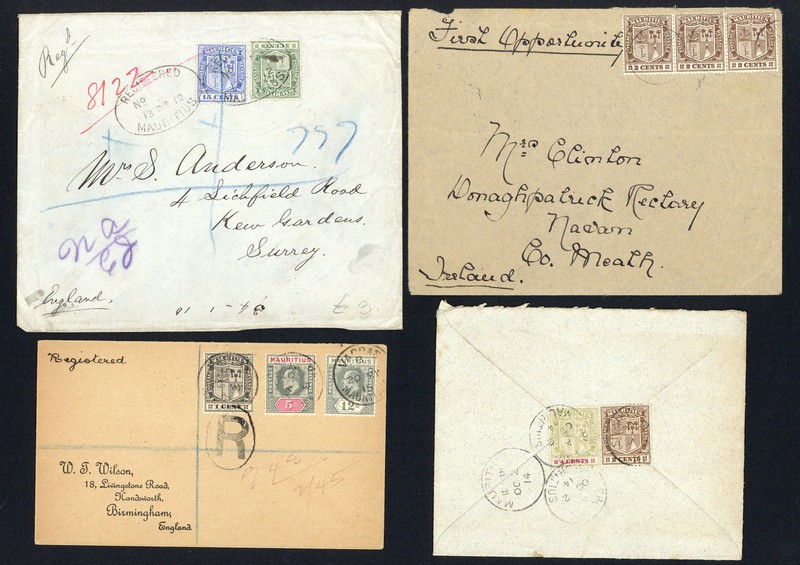 Regd
8122
REGISTERED
No
MAURITIUS
MAURITIUS
15 CENTS
777
Mrs S. Anderson.
4 Lichfield Road
Kew Gardens.
Surrey.
England.
£3.
First Opportunity
MAURITIUS MAURITIUS MAURITIUS
2 CENTS 2 CENTS 2 CENTS
Mrs Clinton
Donaghpatrick Rectory
Navan
Co. Meath.
Ireland.
Registered
MAURITIUS
1 CENT
MAURITIUS
POSTAGE
5c
MAURITIUS
12c
R
W. T. Wilson,
18, Livingstone Road,
Handsworth,
Birmingham,
England.
MAURITIUS
4 CENTS
MAURITIUS
2 CENTS
OC 2
14